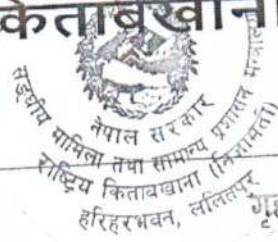 किताबखाना
सङ्घीय मामिला तथा सामान्य प्रशासन मन्त्रालय
नेपाल सरकार
राष्ट्रिय किताबखाना (निजामती)
हरिहरभवन, ललितपुर